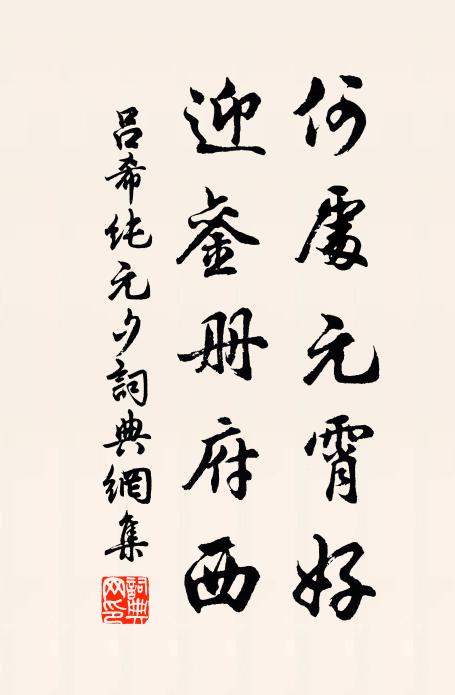 何處元宵好
迎銮册府西
呂希純元夕詞典網集
詞典网印